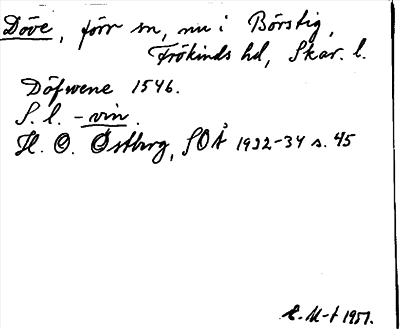 Döve, förr sn, nu i Börstig,
Frökinds hd, Skar. l.
Döfwene 1546.
S. l. -vin.
H. O. Östberg, SOÅ 1932-34 s. 45
E. M-t 1951.